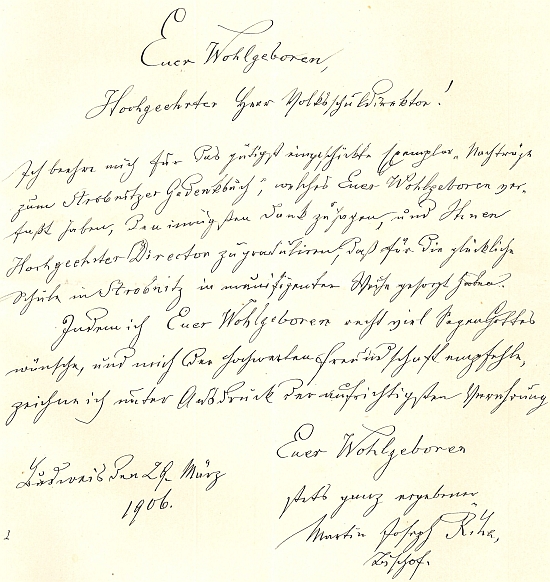 Euer Wohlgeboren,
Hochgeehrter Herr Volksschuldirektor!
Ich beehre mich für das gütigst eingeschickte Exemplar „Nachträge
zum Strobnitzer Gedenkbuch“, welches Euer Wohlgeboren ver-
faßt haben, den innigsten Dank zu sagen, und Ihnen
Hochgeehrter Director zu gratuliren, daß für die glückliche
Schule in Strobnitz in munifizenter Weise gesorgt haben.
Indem ich Euer Wohlgeboren recht viel Segen Gottes
wünsche, und mich der hochwerten Freundschaft empfehle,
zeichne ich unter Ausdruck der aufrichtigsten Verehrung
Euer Wohlgeboren
Budweis den 29. März
1906.
stets ganz ergebener
Martin Joseph Říha,
Bischof.